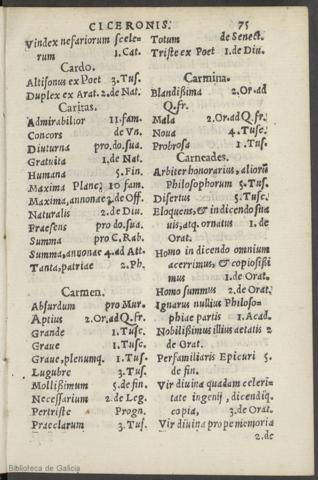 CICERONIS. 75
Vindex nefariorum scele-
rum 1.Cat.
Cardo.
Altisonus ex Poet 3.Tus.
Duplex ex Arat. 2.de Nat.
Caritas.
Admirabilior 11.fam.
Concors de Vn.
Diuturna pro.do.sua.
Gratuita 1.de Nat.
Humana 5.Fin.
Maxima Planc; 10 fam.
Maxima, annonae 3.de Off.
Naturalis 2.de Diu.
Praesens pro do.sua.
Summa pro C.Rab.
Summa, annonae 4.ad Att.
Tanta, patriae 2.Ph.
Carmen.
Absurdum pro Mur.
Aptius 2.Or.ad Q.fr.
Grande 1.Tusc.
Graue 1.Tusc.
Graue, plenumq. 1.Tus.
Lugubre 3.Tus.
Mollißimum 5.de fin.
Necessarium 2.de Leg.
Pertriste Progn.
Praeclarum 3.Tus.
Totum de Senect.
Triste ex Poet 1.de Diu.
Carmina.
Blandißima 2.Or.ad
Q.fr.
Mala 2.Or.ad Q.fr.
Noua 4.Tusc.
Probrosa 1.Tus.
Carneades.
Arbiter honorarius, aliorũ
Philosophorum 5.Tus.
Disertus 5.Tusc.
Eloquens, & in dicendo sua
uis, atq. ornatus 1.de
Orat.
Homo in dicendo omnium
acerrimus, & copiosißi
mus 1.de Orat.
Homo summus 2.de Orat.
Ignarus nullius Philoso-
phiae partis 1.Acad.
Nobilißimus illius aetatis 2
de Orat.
Perfamiliaris Epicuri 5.
de fin.
Vir diuina quadam celeri-
tate ingenij, dicendiq.
copia, 3.de Orat.
Vir diuina prope memoria
2.de
Biblioteca de Galicia